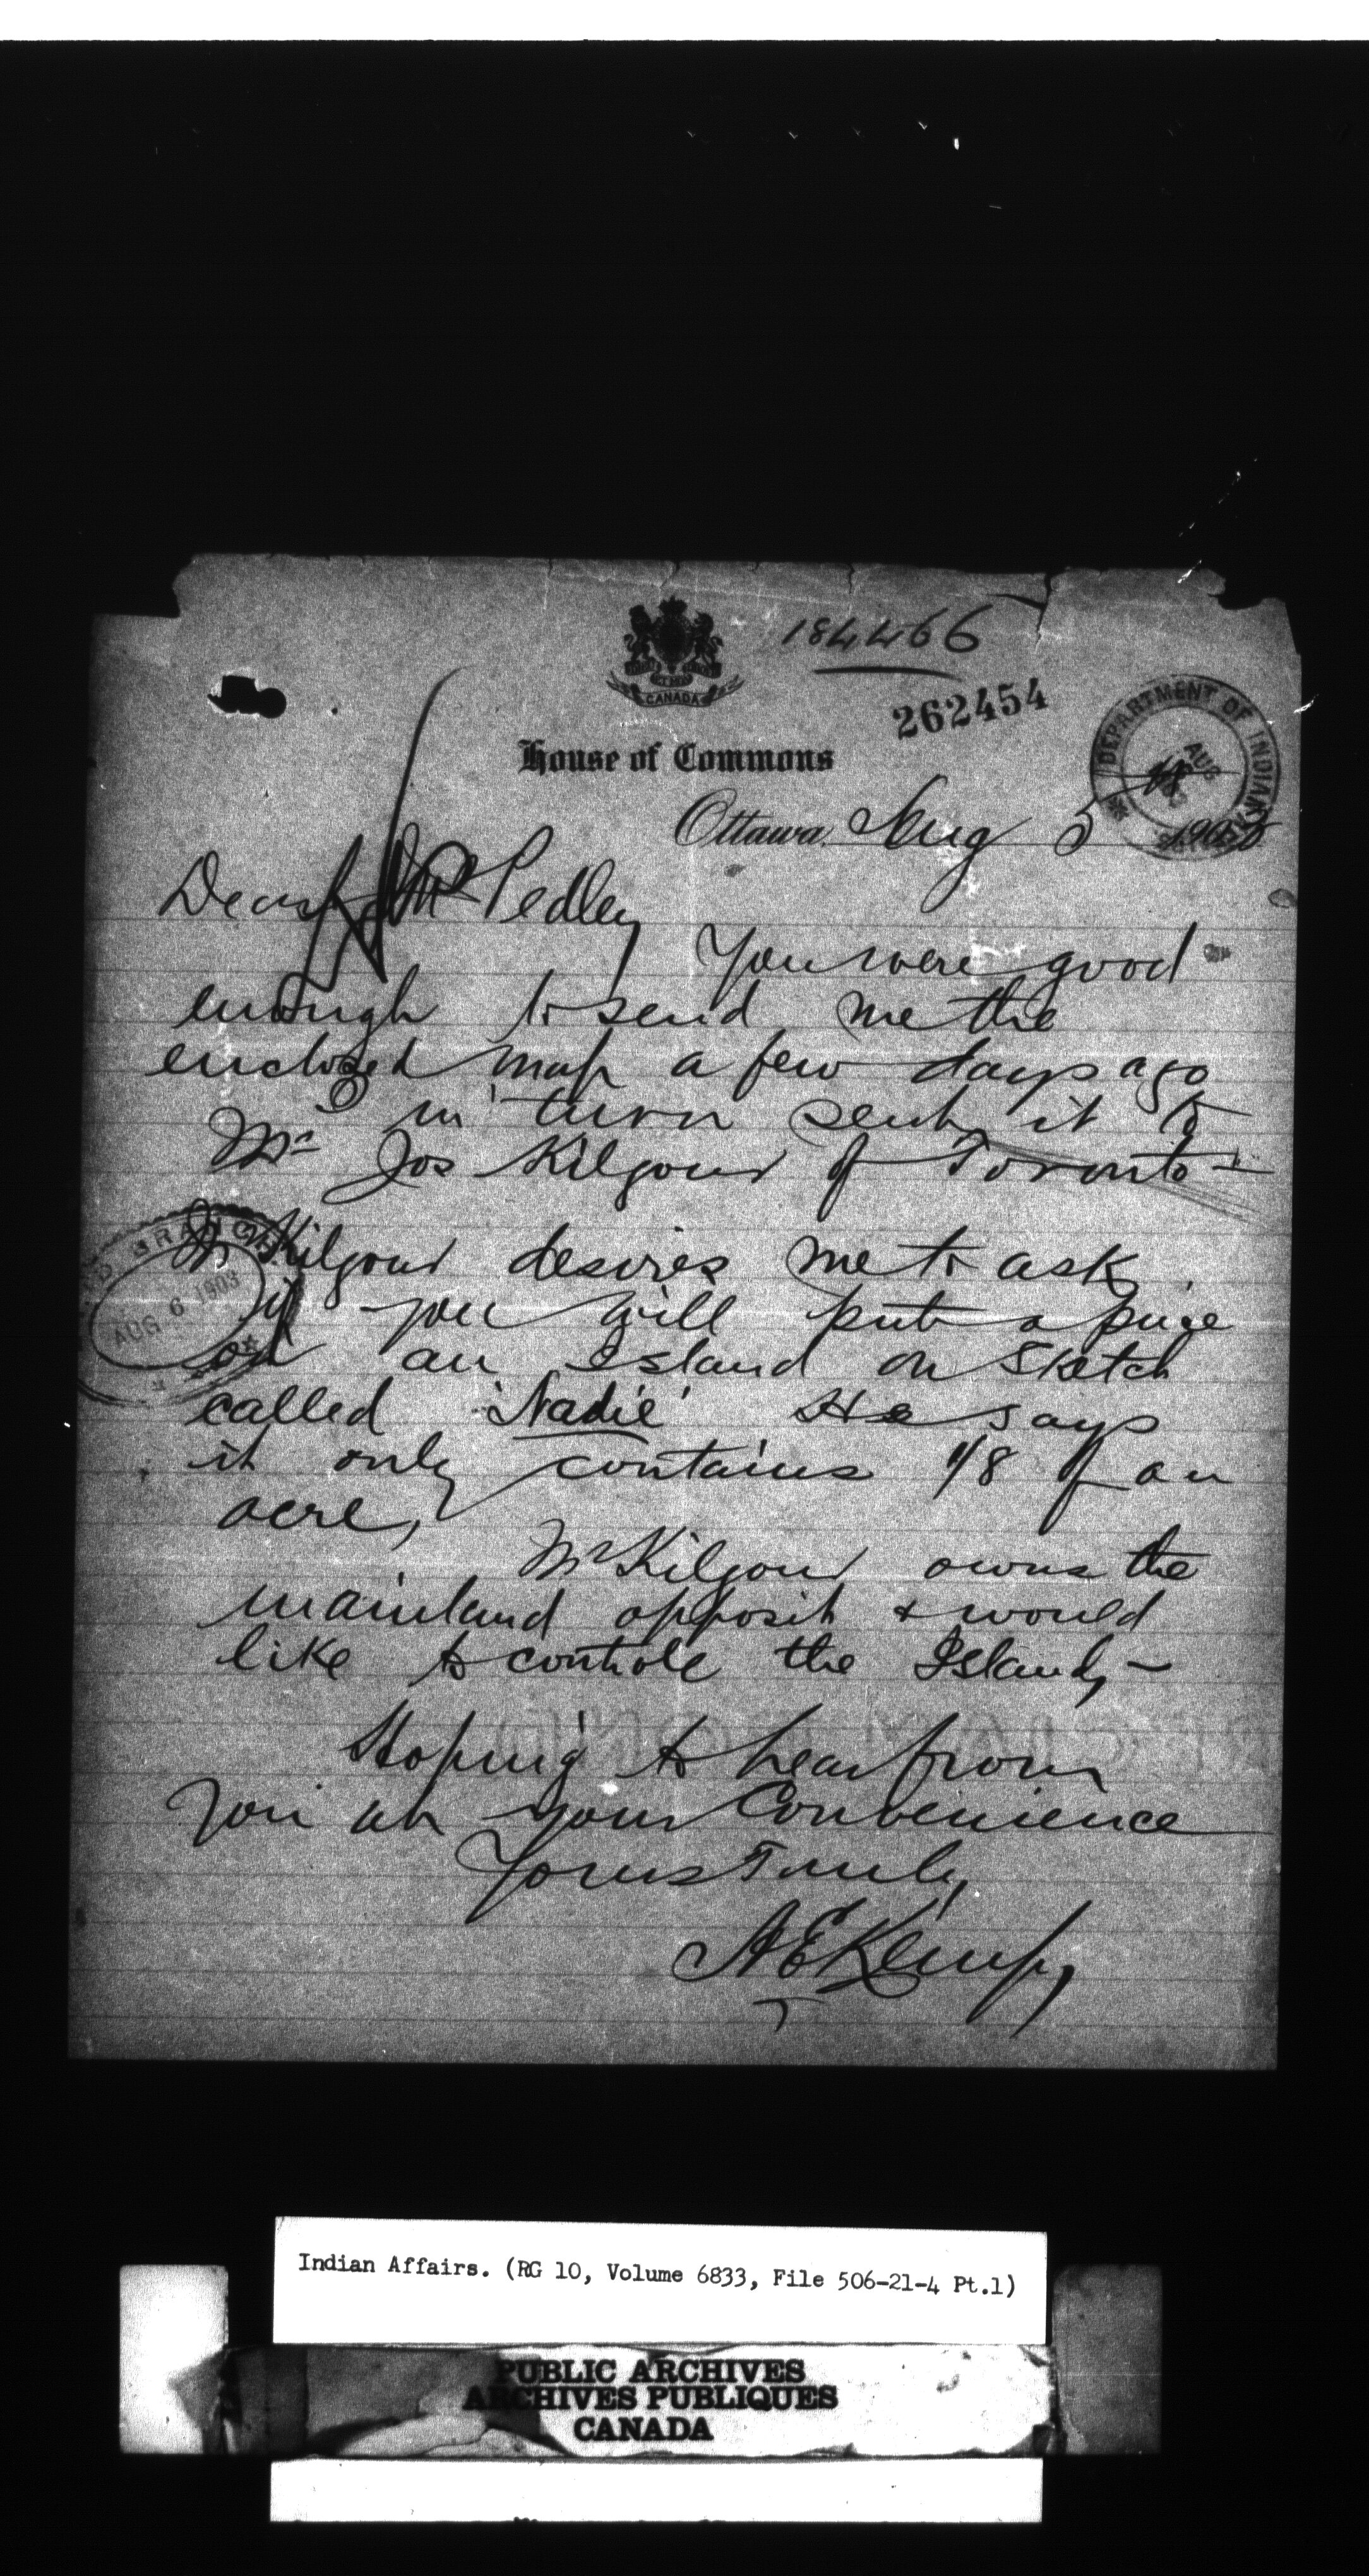 184466
CANADA
262454
DEPARTMENT OF INDIAN
AUG
House of Commons
Ottawa, Aug 5 1903
Dear Mr Pedley
You were good
enough to send me the
enclosed map a few days ago
I in turn sent it to
Mr Jos Kilgour of Toronto -
BRANCH
AUG 6 1903
Mr Kilgour desires me to ask
if you will put a price
on an Island on sketch
called 'Nadie' He says
it only contains 1/8 of an
acre,
Mr Kilgour owns the
mainland opposit & would
like to controle the Island, -
Hoping to hear from
you at your Convenience
Yours Truly,
A E Kemp,
Indian Affairs. (RG 10, Volume 6833, File 506-21-4 Pt.1)
PUBLIC ARCHIVES
ARCHIVES PUBLIQUES
CANADA